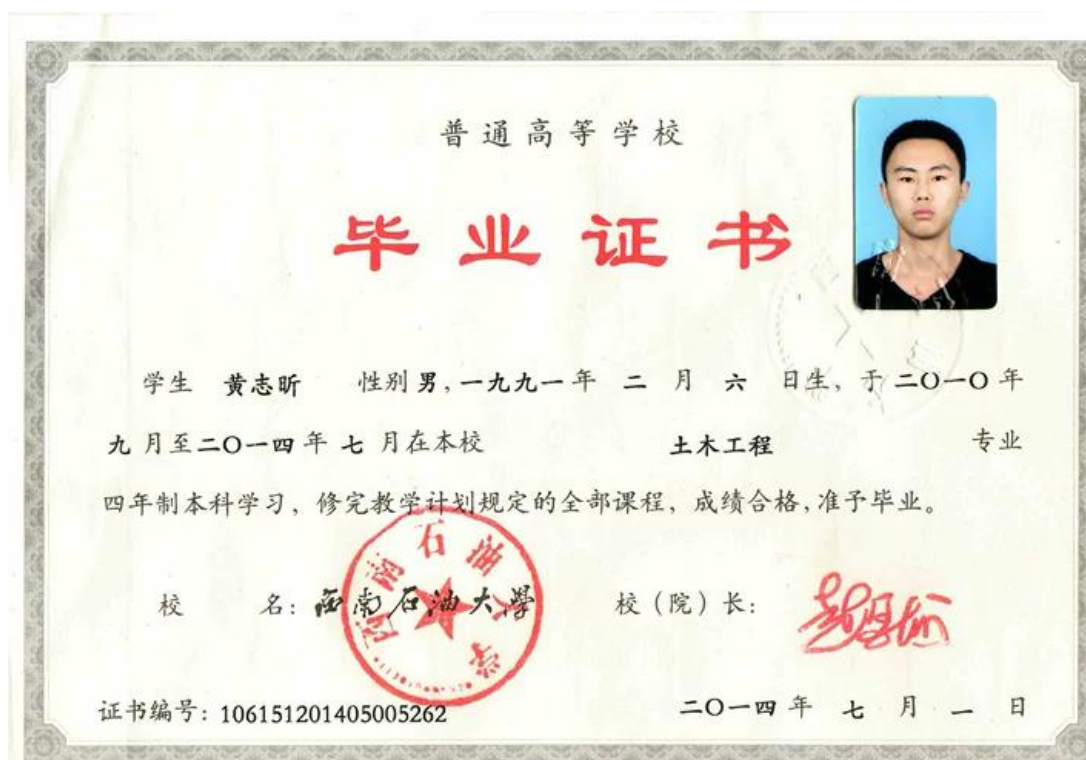 普通高等学校
毕业证书
学生 黄志昕 性别 男，一九九一 年 二 月 六 日生，于 二〇一〇 年
九 月至 二〇一四 年 七 月在本校 土木工程 专业
四年制本科学习，修完教学计划规定的全部课程，成绩合格，准予毕业。
校 名：西南石油大學 校（院）长：
西南石油大学
证书编号：106151201405005262 二〇一四 年 七 月 一 日